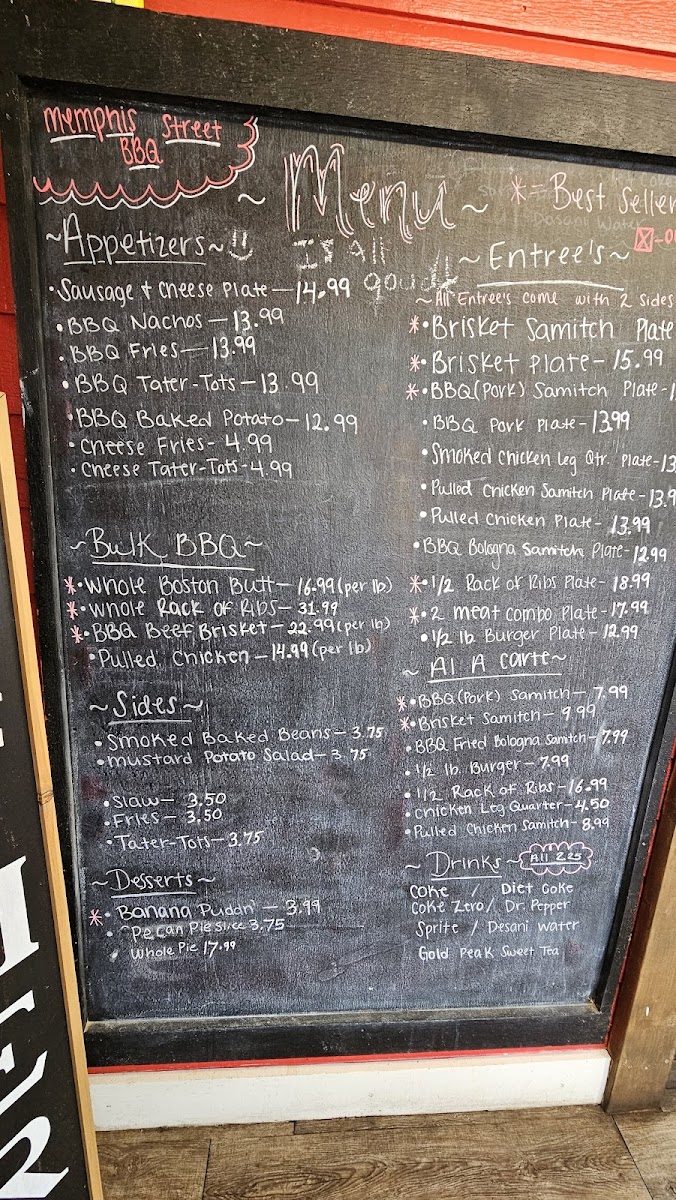 Memphis Street
BBQ
~ Menu ~
* = Best Seller
~Appetizers~
Is all
good!!
• Sausage + Cheese Plate — 14.99
• BBQ Nachos — 13.99
• BBQ Fries — 13.99
• BBQ Tater-Tots — 13.99
• BBQ Baked Potato — 12.99
• Cheese Fries - 4.99
• Cheese Tater-Tots - 4.99
~Bulk BBQ~
*• Whole Boston Butt — 16.99 (per lb)
*• Whole Rack of Ribs — 31.99
*• BBQ Beef Brisket — 22.99 (per lb)
• Pulled Chicken — 14.99 (per lb)
~Sides~
• Smoked Baked Beans — 3.75
• Mustard Potato Salad — 3.75
• Slaw — 3.50
• Fries — 3.50
• Tater-Tots — 3.75
~Desserts~
*• Banana Puddn' — 3.99
• Pecan Pie Slice 3.75
Whole Pie 17.99
~ Entree's ~
~ All Entree's come with 2 sides
*• Brisket Samitch Plate
*• Brisket Plate - 15.99
*• BBQ (Pork) Samitch Plate -
• BBQ Pork Plate - 13.99
• Smoked Chicken Leg Qtr. Plate - 13
• Pulled Chicken Samitch Plate - 13.9
• Pulled Chicken Plate - 13.99
• BBQ Bologna Samitch Plate - 12.99
*• 1/2 Rack of Ribs Plate - 18.99
*• 2 meat combo Plate - 17.99
• 1/2 lb Burger Plate - 12.99
~ Al A carte ~
*• BBQ (Pork) Samitch — 7.99
*• Brisket Samitch — 9.99
• BBQ Fried Bologna Samitch - 7.99
• 1/2 lb. Burger - 7.99
• 1/2 Rack of Ribs - 16.99
• Chicken Leg Quarter - 4.50
• Pulled Chicken Samitch - 8.99
~ Drinks ~ All 2.25
Coke / Diet Coke
Coke Zero / Dr. Pepper
Sprite / Desani Water
Gold Peak Sweet Tea